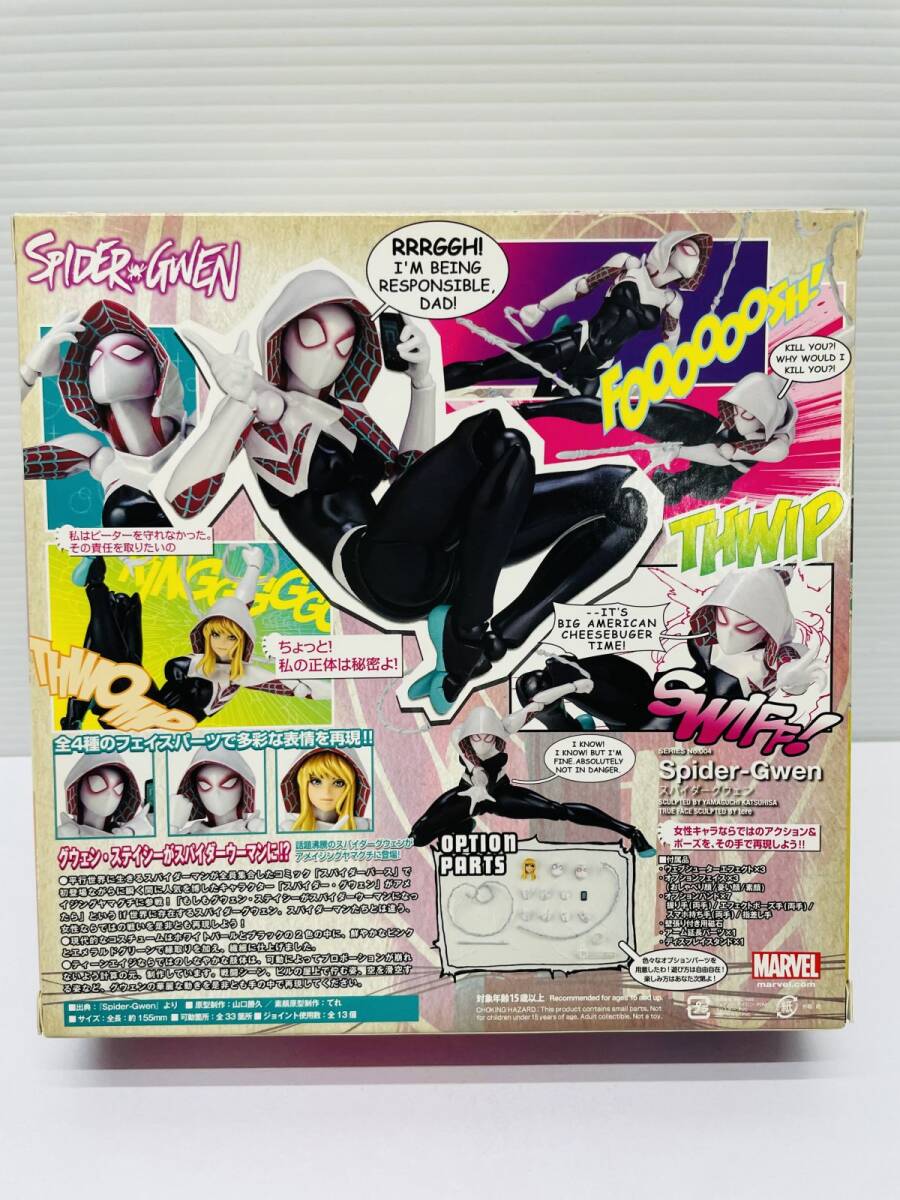 SPIDER-GWEN
RRRGGH!
I'M BEING
RESPONSIBLE,
DAD!
FOOOOOOOSH!
KILL YOU?!
WHY WOULD I
KILL YOU?!
私はピーターを守れなかった。
その責任を取りたいの
THWIP
--IT'S
BIG AMERICAN
CHEESEBUGER
TIME!
ちょっと!
私の正体は秘密よ!
THWOMP
SWIFF!
全4種のフェイスパーツで多彩な表情を再現!!
I KNOW!
I KNOW! BUT I'M
FINE. ABSOLUTELY
NOT IN DANGER.
SERIES No.004
Spider-Gwen
スパイダーグウェン
SCULPTED BY YAMAGUCHI KATSUHISA
TRUE FACE SCULPTED BY tere
女性キャラならではのアクション&
ポーズを、その手で再現しよう!!
グウェン・ステイシーがスパイダーウーマンに!?
話題沸騰のスパイダーグウェンが
アメイジングヤマグチに登場!
●平行世界に生きるスパイダーマンが全員集合したコミック「スパイダーバース」で
初登場ながらに瞬く間に人気を博したキャラクター「スパイダー・グウェン」がアメ
イジングヤマグチに参戦!「もしもグウェン・ステイシーがスパイダーウーマンになっ
たら」というif世界に存在するスパイダーグウェン。スパイダーマンたちとは違う、
女性ならではの戦いを是非とも再現しよう!
●現代的なコスチュームはホワイトパールとブラックの2色の中に、鮮やかなピンク
とエメラルドグリーンで縁取りを加え、綺麗に仕上げました。
●ティーンエイジならではのしなやかな肢体は、可動によってプロポーションが崩れ
ないよう計算の元、制作しています。戦闘シーン、ビルの屋上で佇む姿、空を滑空す
る姿など、グウェンの華麗な動きを是非とも手の中で再現してください。
OPTION
PARTS
■付属品
・ウェッブシューターエフェクト×3
・オプションフェイス×3
(おしゃべり顔/憂い顔/素顔)
・オプションハンド×7
握り手(両手)/エフェクトポーズ手(両手)/
スマホ持ち手(両手)/指差し手
・壁張り付き用磁石
・アーム延長パーツ×1
・ディスプレイスタンド×1
色々なオプションパーツを
用意したわ!遊び方は自由自在!
楽しみ方はあなた次第よ!
MARVEL
marvel.com
■出典:『Spider-Gwen』より ■原型制作:山口勝久/素顔原型制作:てれ
■サイズ:全長:約155mm ■可動箇所:全33箇所 ■ジョイント使用数:全13個
対象年齢15歳以上 Recommended for ages 15 and up.
CHOKING HAZARD: This product contains small parts. Not
for children under 15 years of age. Adult collectible. Not a toy.
プラ
紙